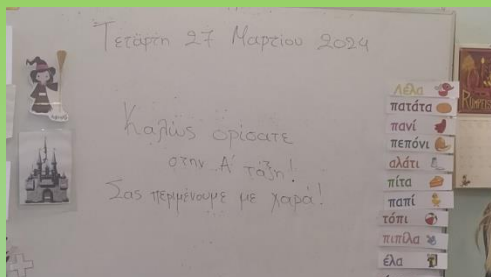 Τετάρτη 27 Μαρτίου 2024
Καλώς ορίσατε
στην Α' τάξη!
Σας περιμένουμε με χαρά!
Λέλα
πατάτα
πανί
πεπόνι
αλάτι
πίτα
παπί
τόπι
πιπίλα
έλα